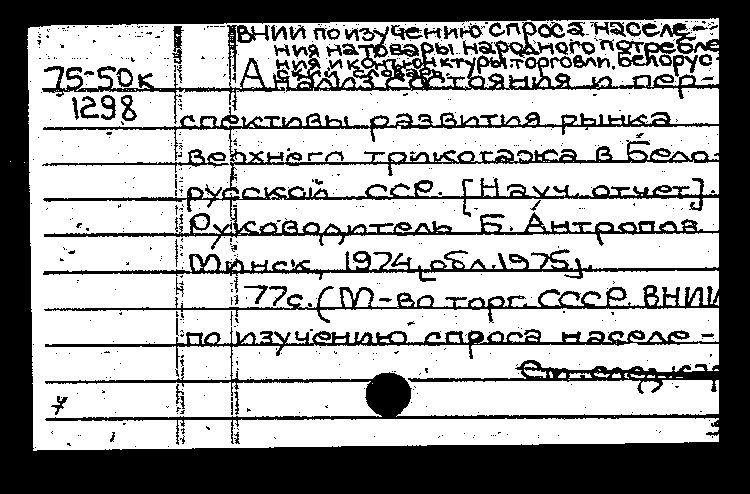 ВНИИ по изучению спроса населе-
ния на товары народного потребле
ния и конъюнктуры торговли. Белорус-
75-50к
Анализ состояния и пер-
1298
спективы развития рынка
верхнего трикотажа в Бело-
русской ССР. [Науч. отчет].
Руководитель Б. Антропов.
Минск, 1974, [обл. 1975].
77с. (М-во торг. СССР. ВНИИ
по изучению спроса населе-
См. след. кар
7